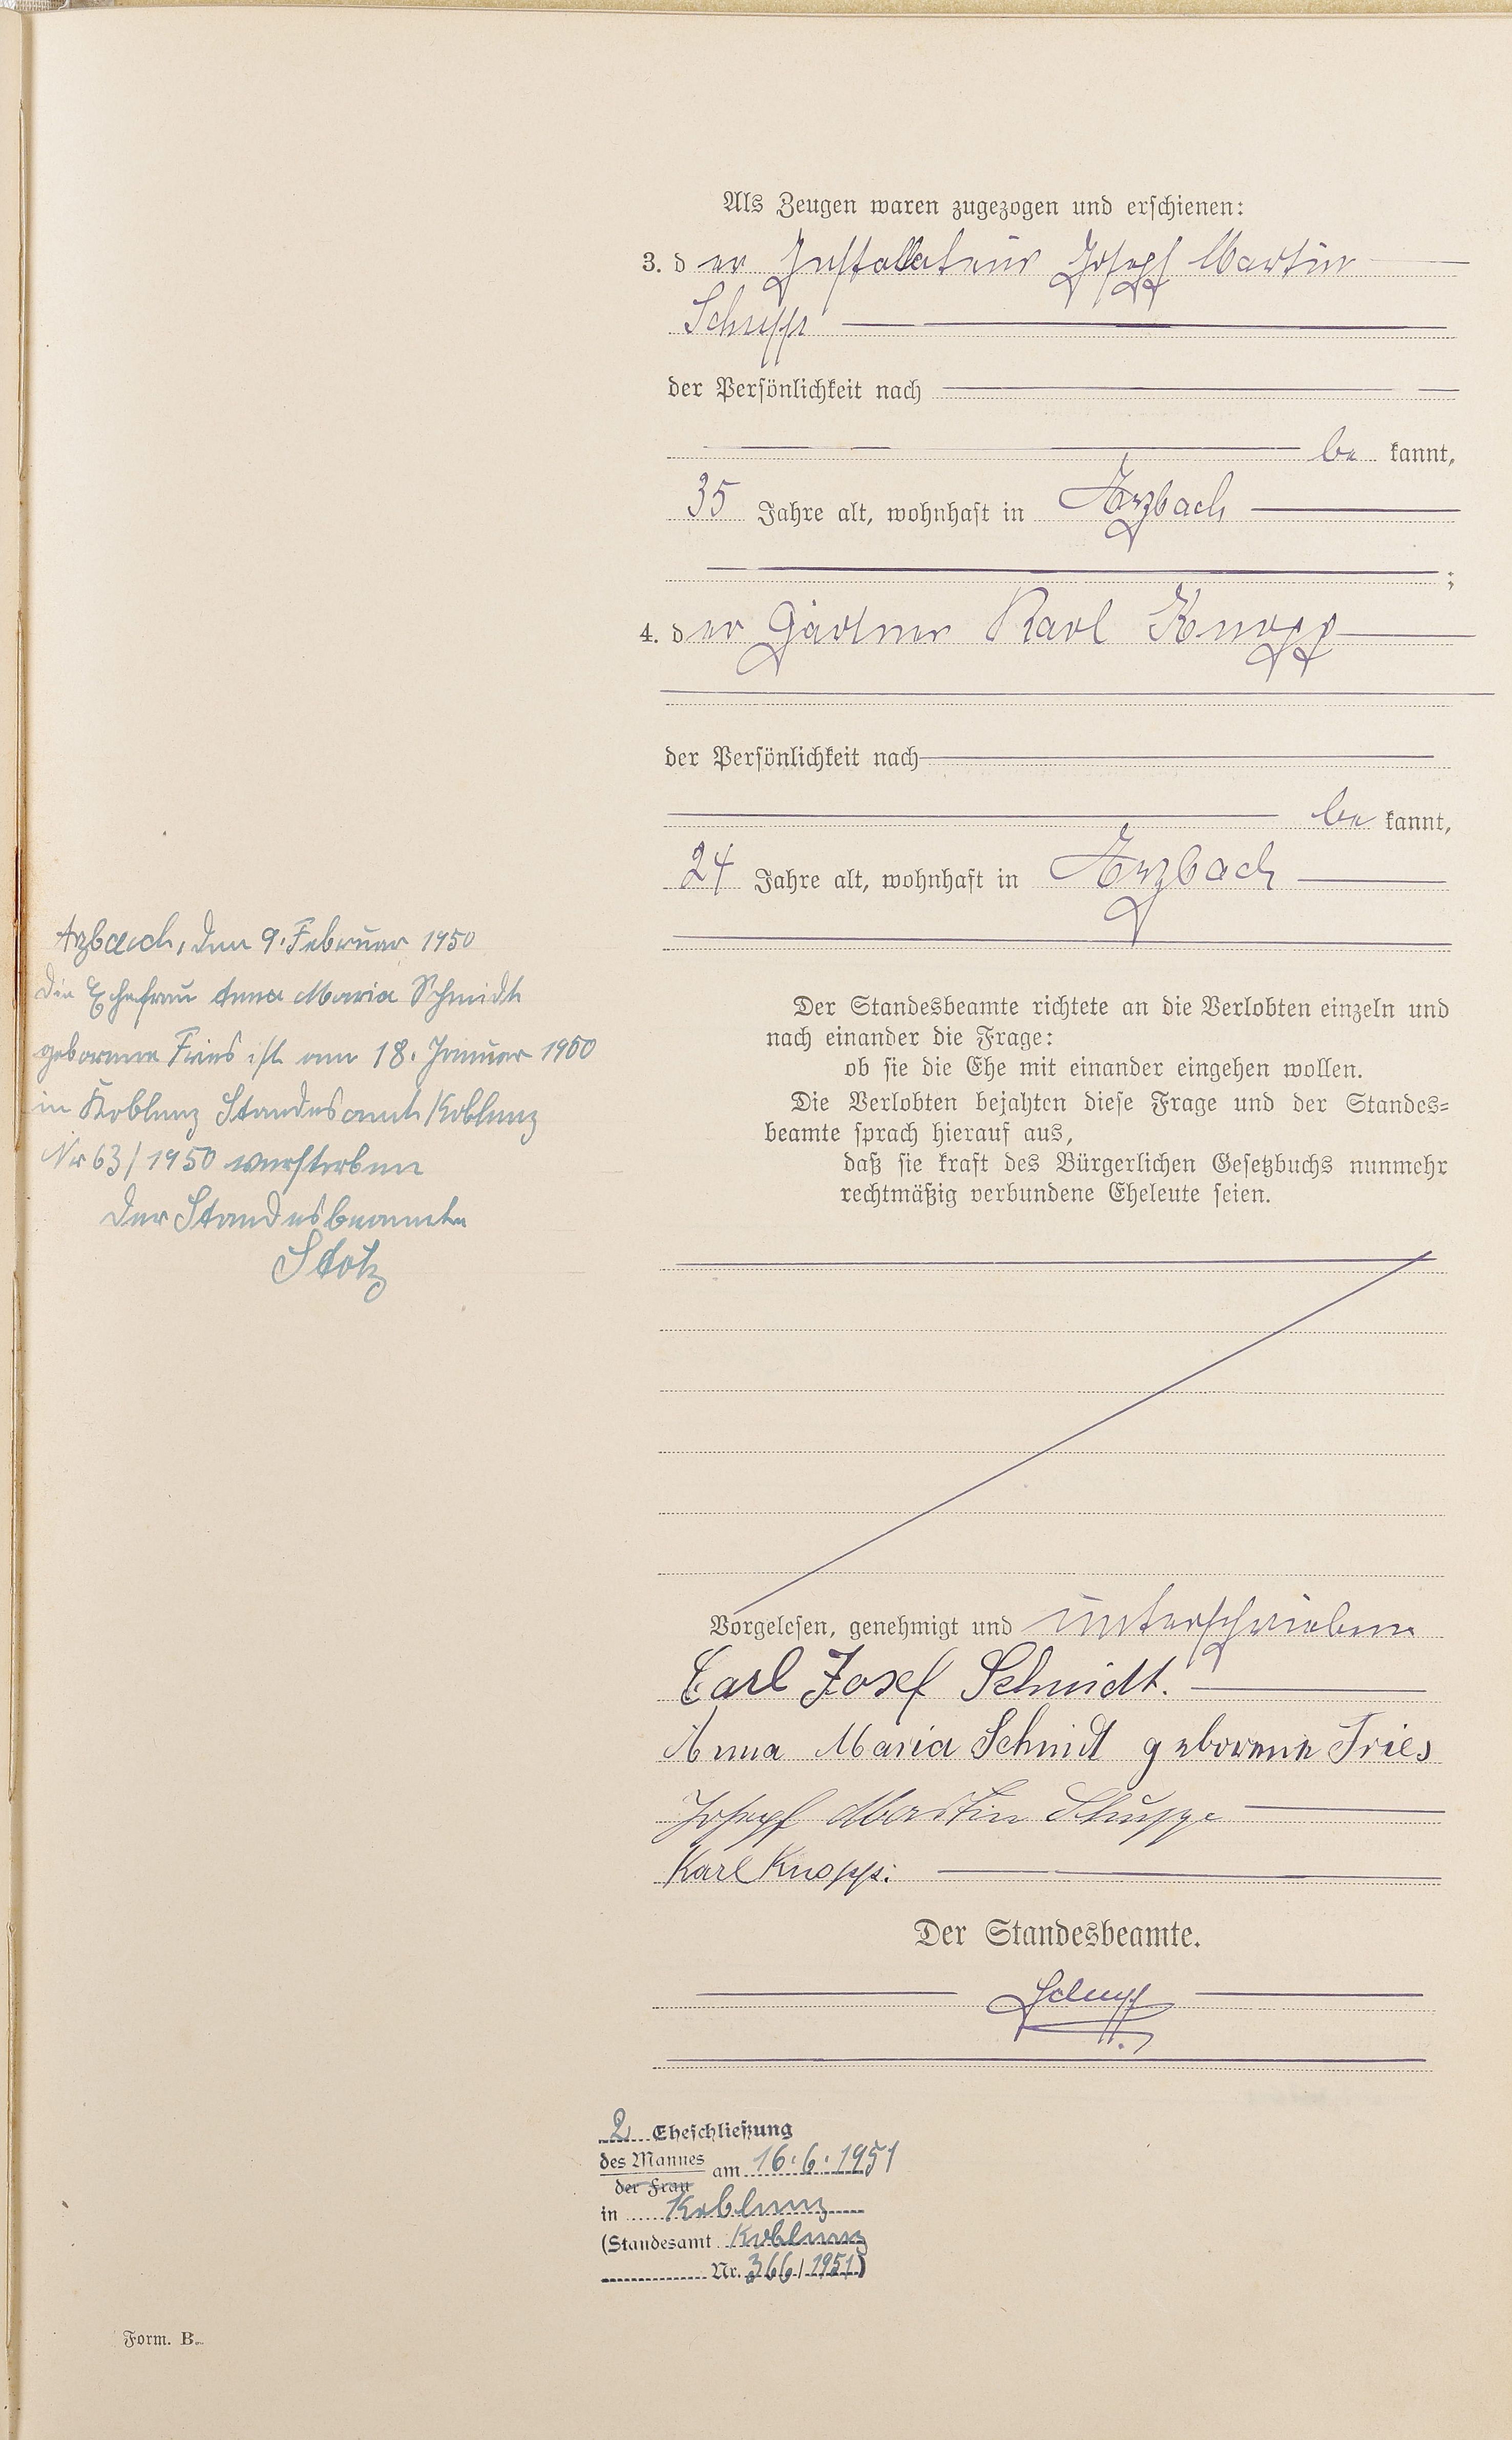 Als Zeugen waren zugezogen und erschienen:
3. der Installateur Joseph Martin
Schupp
der Persönlichkeit nach
be kannt,
35 Jahre alt, wohnhaft in Arzbach
;
4. der Gärtner Karl Knopp
der Persönlichkeit nach
be kannt,
24 Jahre alt, wohnhaft in Arzbach
Arzbach, den 9. Februar 1950
Die Ehefrau Anna Maria Schmidt
geborene Fries ist am 18. Januar 1950
in Koblenz Standesamt Koblenz
Nr 63/1950 verstorben
Der Standesbeamte
Stotz
Der Standesbeamte richtete an die Verlobten einzeln und
nach einander die Frage:
ob sie die Ehe mit einander eingehen wollen.
Die Verlobten bejahten diese Frage und der Standes=
beamte sprach hierauf aus,
daß sie kraft des Bürgerlichen Gesetzbuchs nunmehr
rechtmäßig verbundene Eheleute seien.
Vorgelesen, genehmigt und unterschrieben
Carl Josef Schmidt.
Anna Maria Schmidt geborene Fries
Joseph Martin Schupp
Karl Knopp.
Der Standesbeamte.
Schupp
2 Eheschließung
des Mannes
der Frau
am 16.6.1951
in Koblenz
(Standesamt Koblenz
Nr. 366/1951)
Form. B.